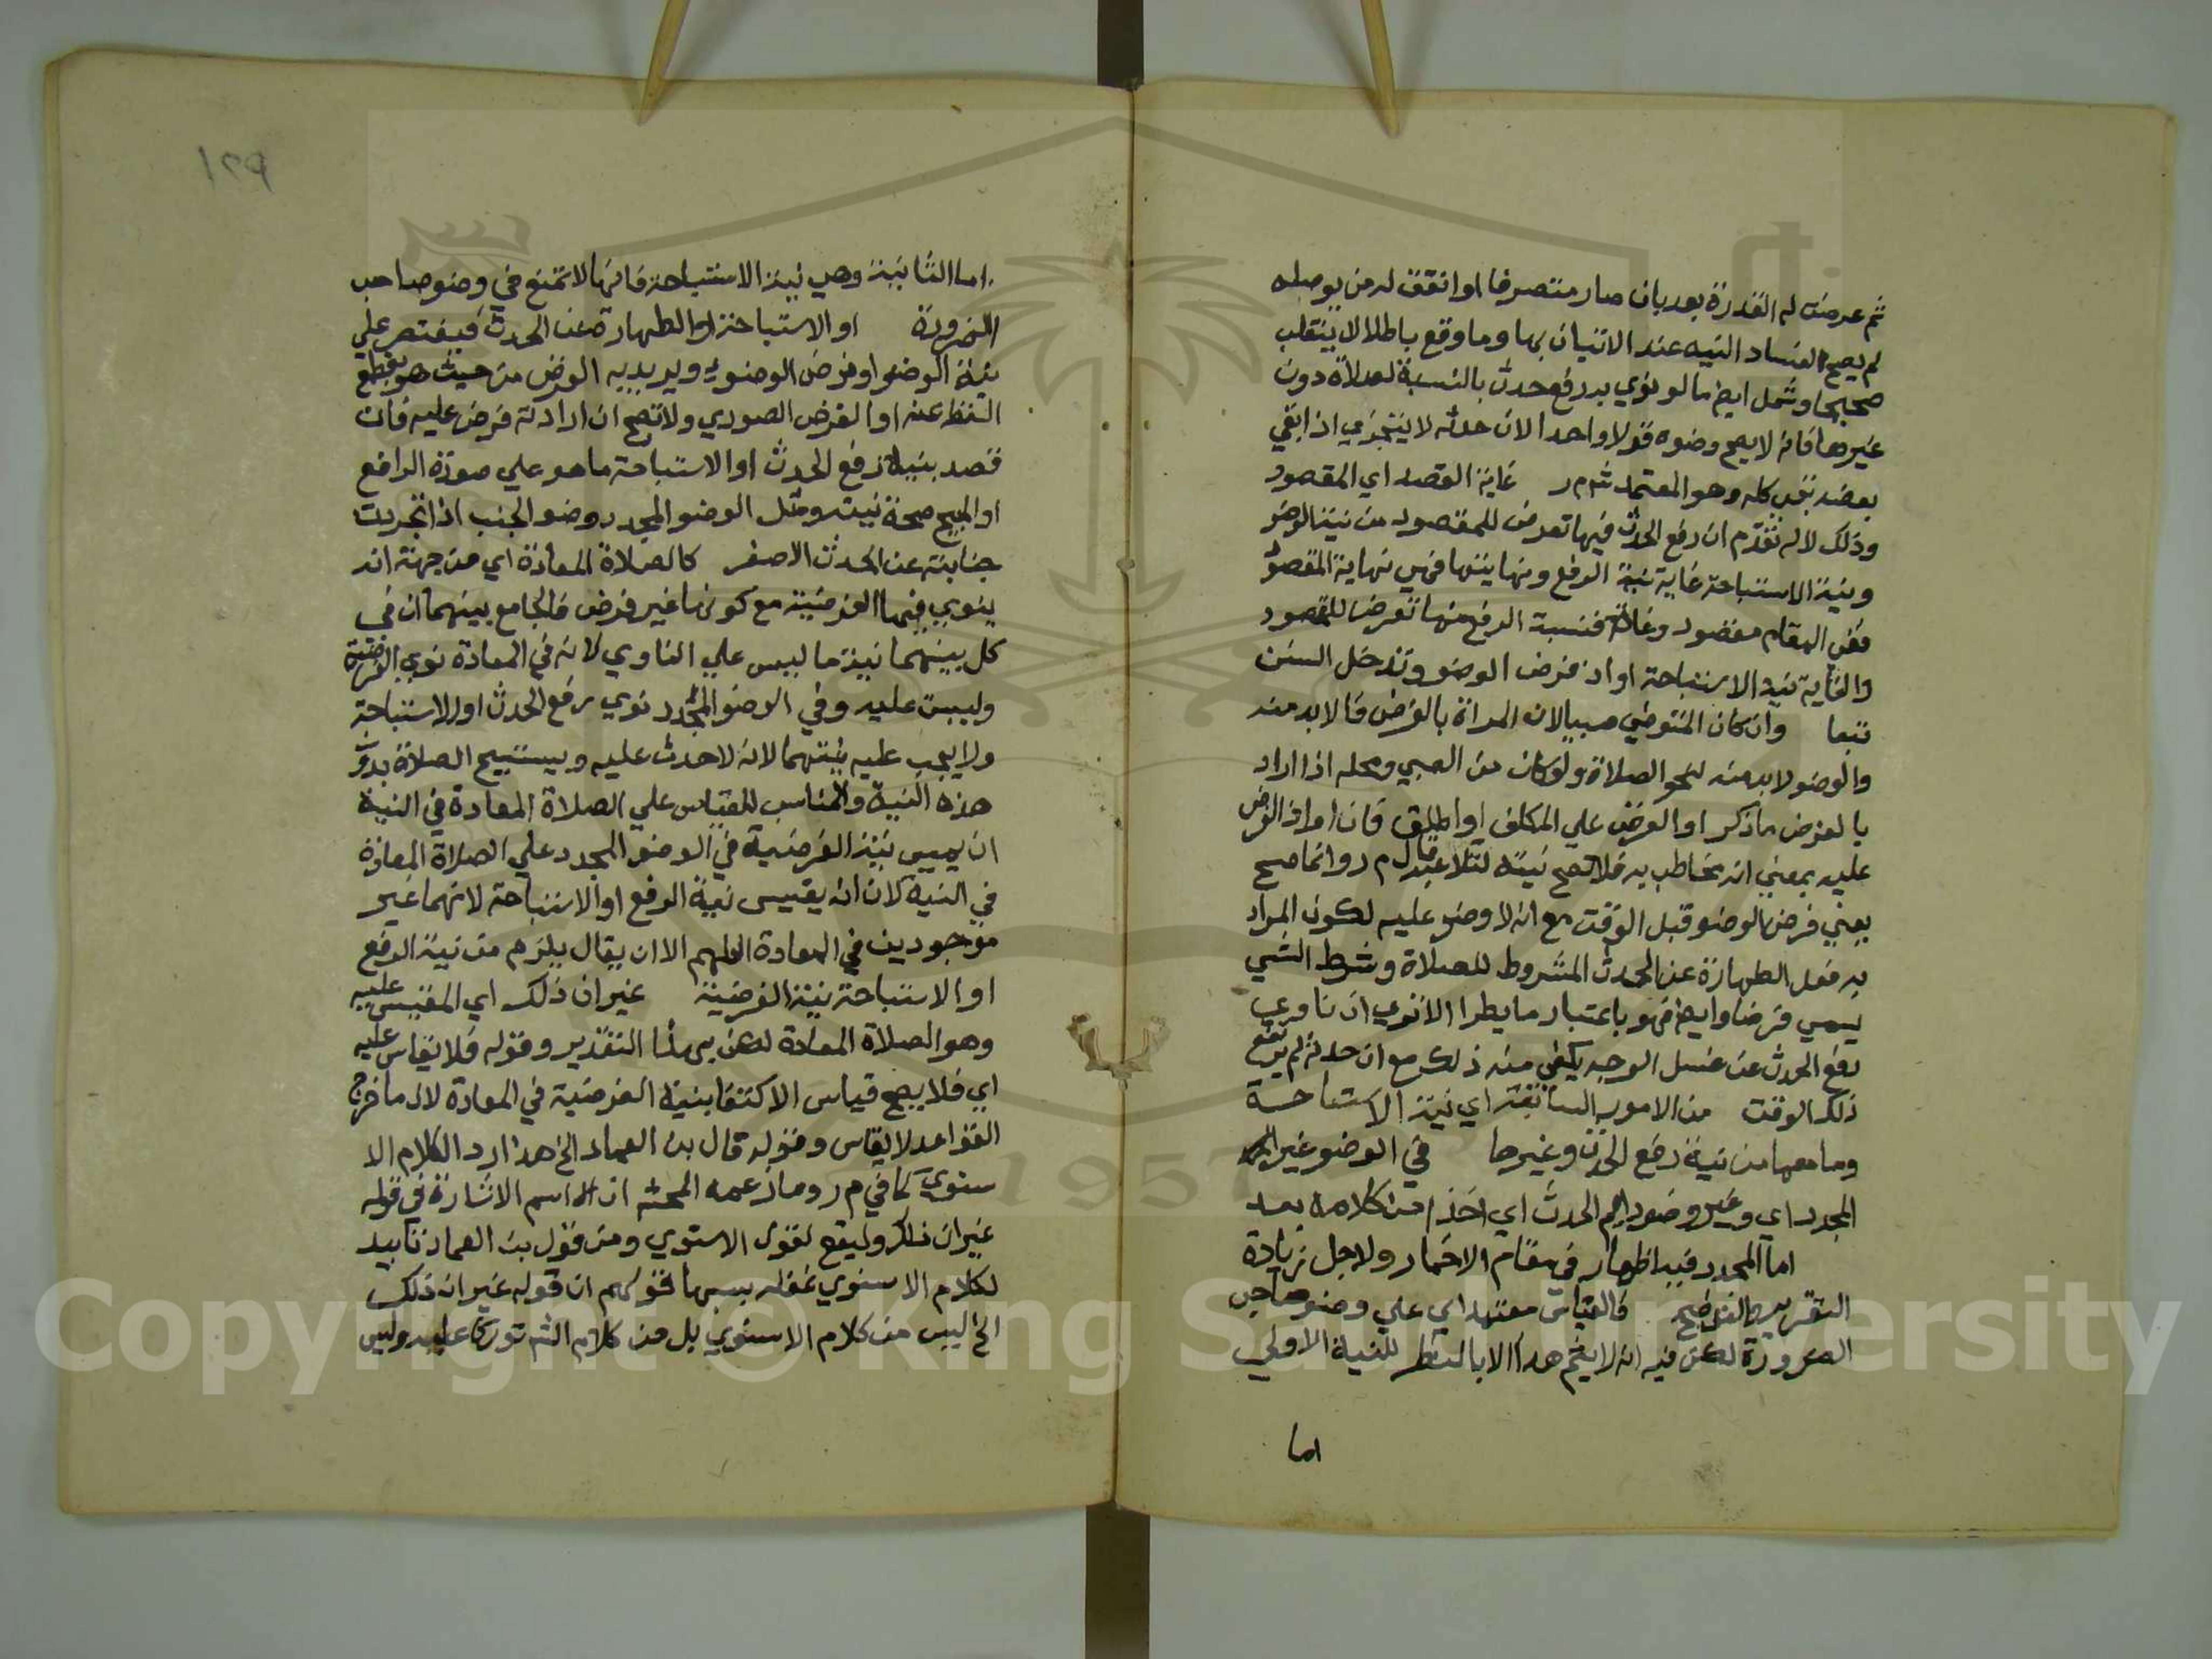 ثم عرضت له القدرة بعد بان صار متصرفا او اتفق له من يوصله
لم يصح لفساد النيه عند الاتيان بها وما وقع باطلا لا ينقلب
صحيحا وشمل ايضا ما لو نوي به رفع حدث بالنسبة لصلاة دون
غيرها فانه لا يصح وضوه قولا واحدا لان حدثه لا يتجزي اذا بقي
بعضه بقي كله وهو المعتمد ش م ر غاية القصد اي المقصود
وذلك لانه تقدم ان رفع الحدث فيها تعرض للمقصود من نية الوضو
ونية الاستباحة غاية نية الرفع ونهايتها فهي نهاية المقصود
ففي المقام مقصود وغاية فنسبة الرفع منها تعرض للمقصود
والغاية نية الاستباحة او اد فرض الوضو وتدخل السنن
تبعا وان كان المتوضي صبيا لان المراد بالفرض ما لا بد منه
والوضو لا بد منه لنحو الصلاة ولو كان من الصبي ومحله اذا اراد
بالفرض ما ذكر او الفرض علي المكلف او اطلق فان اراد الفرض
عليه بمعني انه مخاطب به فلا تصح نيته لتلاعبه قال م ر وانما صح
بعني فرض الوضو قبل الوقت مع انه لا وضو عليه لكون المراد
به فعل الطهارة عن الحدث المشروط للصلاة وشرط الشي
يسمي فرضا وايضا فهو باعتبار ما يطرا الا تري ان ناوي
رفع الحدث عند غسل الوجه يكفي منه ذلك مع ان حدثه لم يرتفع
ذلك الوقت من الامور السابقة اي نية الاستباحة
وما معها من نية رفع الحدث وغيرها في الوضو غير
المجدد اي وغير وضو دايم الحدث اي اخذا من كلامه بعد
اما المجدد فيه اظهار في مقام الاضمار ولاجل زيادة
التقرير والتوضيح فالقياس معتمد اي علي وضو صاحب
الضرورة لكن فيه انه لا يتم هذا الا بالنظر للنية الاولي
اما
١٢٩
اما الثانية وهي نية الاستباحة فانها لا تمتنع في وضو صاحب
الضرورة او الاستباحة او الطهارة عن الحدث فيقتصر علي
نية الوضو او فرض الوضو ويريد به الفرض من حيث هو بقطع
النظر عنه او الفرض الصوري ولا تصح ان اراد انه فرض عليه فان
قصد بنية رفع الحدث او الاستباحة ما هو علي صورة الرافع
او المبيح صحة نيته ومثل الوضو المجدد وضو الجنب اذا تجردت
جنابته عن الحدث الاصغر كالصلاة المعادة اي من جهة انه
ينوي فيها الفرضية مع كونها غير فرض فالجامع بينهما ان في
كل بينهما نية ما ليس علي الناوي لانه في المعادة نوي الفرضية
وليست عليه وفي الوضو المجدد نوي رفع الحدث او الاستباحة
ولا يجب عليه نيتهما لانه لا حدث عليه ويستبيح الصلاة بدون
هذه النية والمناسب للقياس علي الصلاة المعادة في النية
ان يقيس نية الفرضية في الوضو المجدد علي الصلاة المعادة
في النية لا ان يقيس نية الرفع او الاستباحة لانهما غير
موجودين في المعادة اللهم الا ان يقال يلزم من نية الرفع
او الاستباحة نية الفرضية غير ان ذلك اي المقيس عليه
وهو الصلاة المعادة لكن بهذا التقدير وقوله فلا يقاس عليه
اي فلا يصح قياس الاكتفا بنية الفرضية في المعادة لان ما خرج عن
القواعد لا يقاس وقوله قال بن العماد الخ هذا رد الكلام الا
سنوي كما في م ر وما زعمه المحشي ان اسم الاشارة في قوله
غير ان ذلك وليقع لقول الاسنوي ومن قول بن العماد تاييد
لكلام الاسنوي غفلة سببها فهم ان قوله غير ان ذلك
الخ ليس من كلام الاسنوي بل من كلام الش توركا عليه وليس